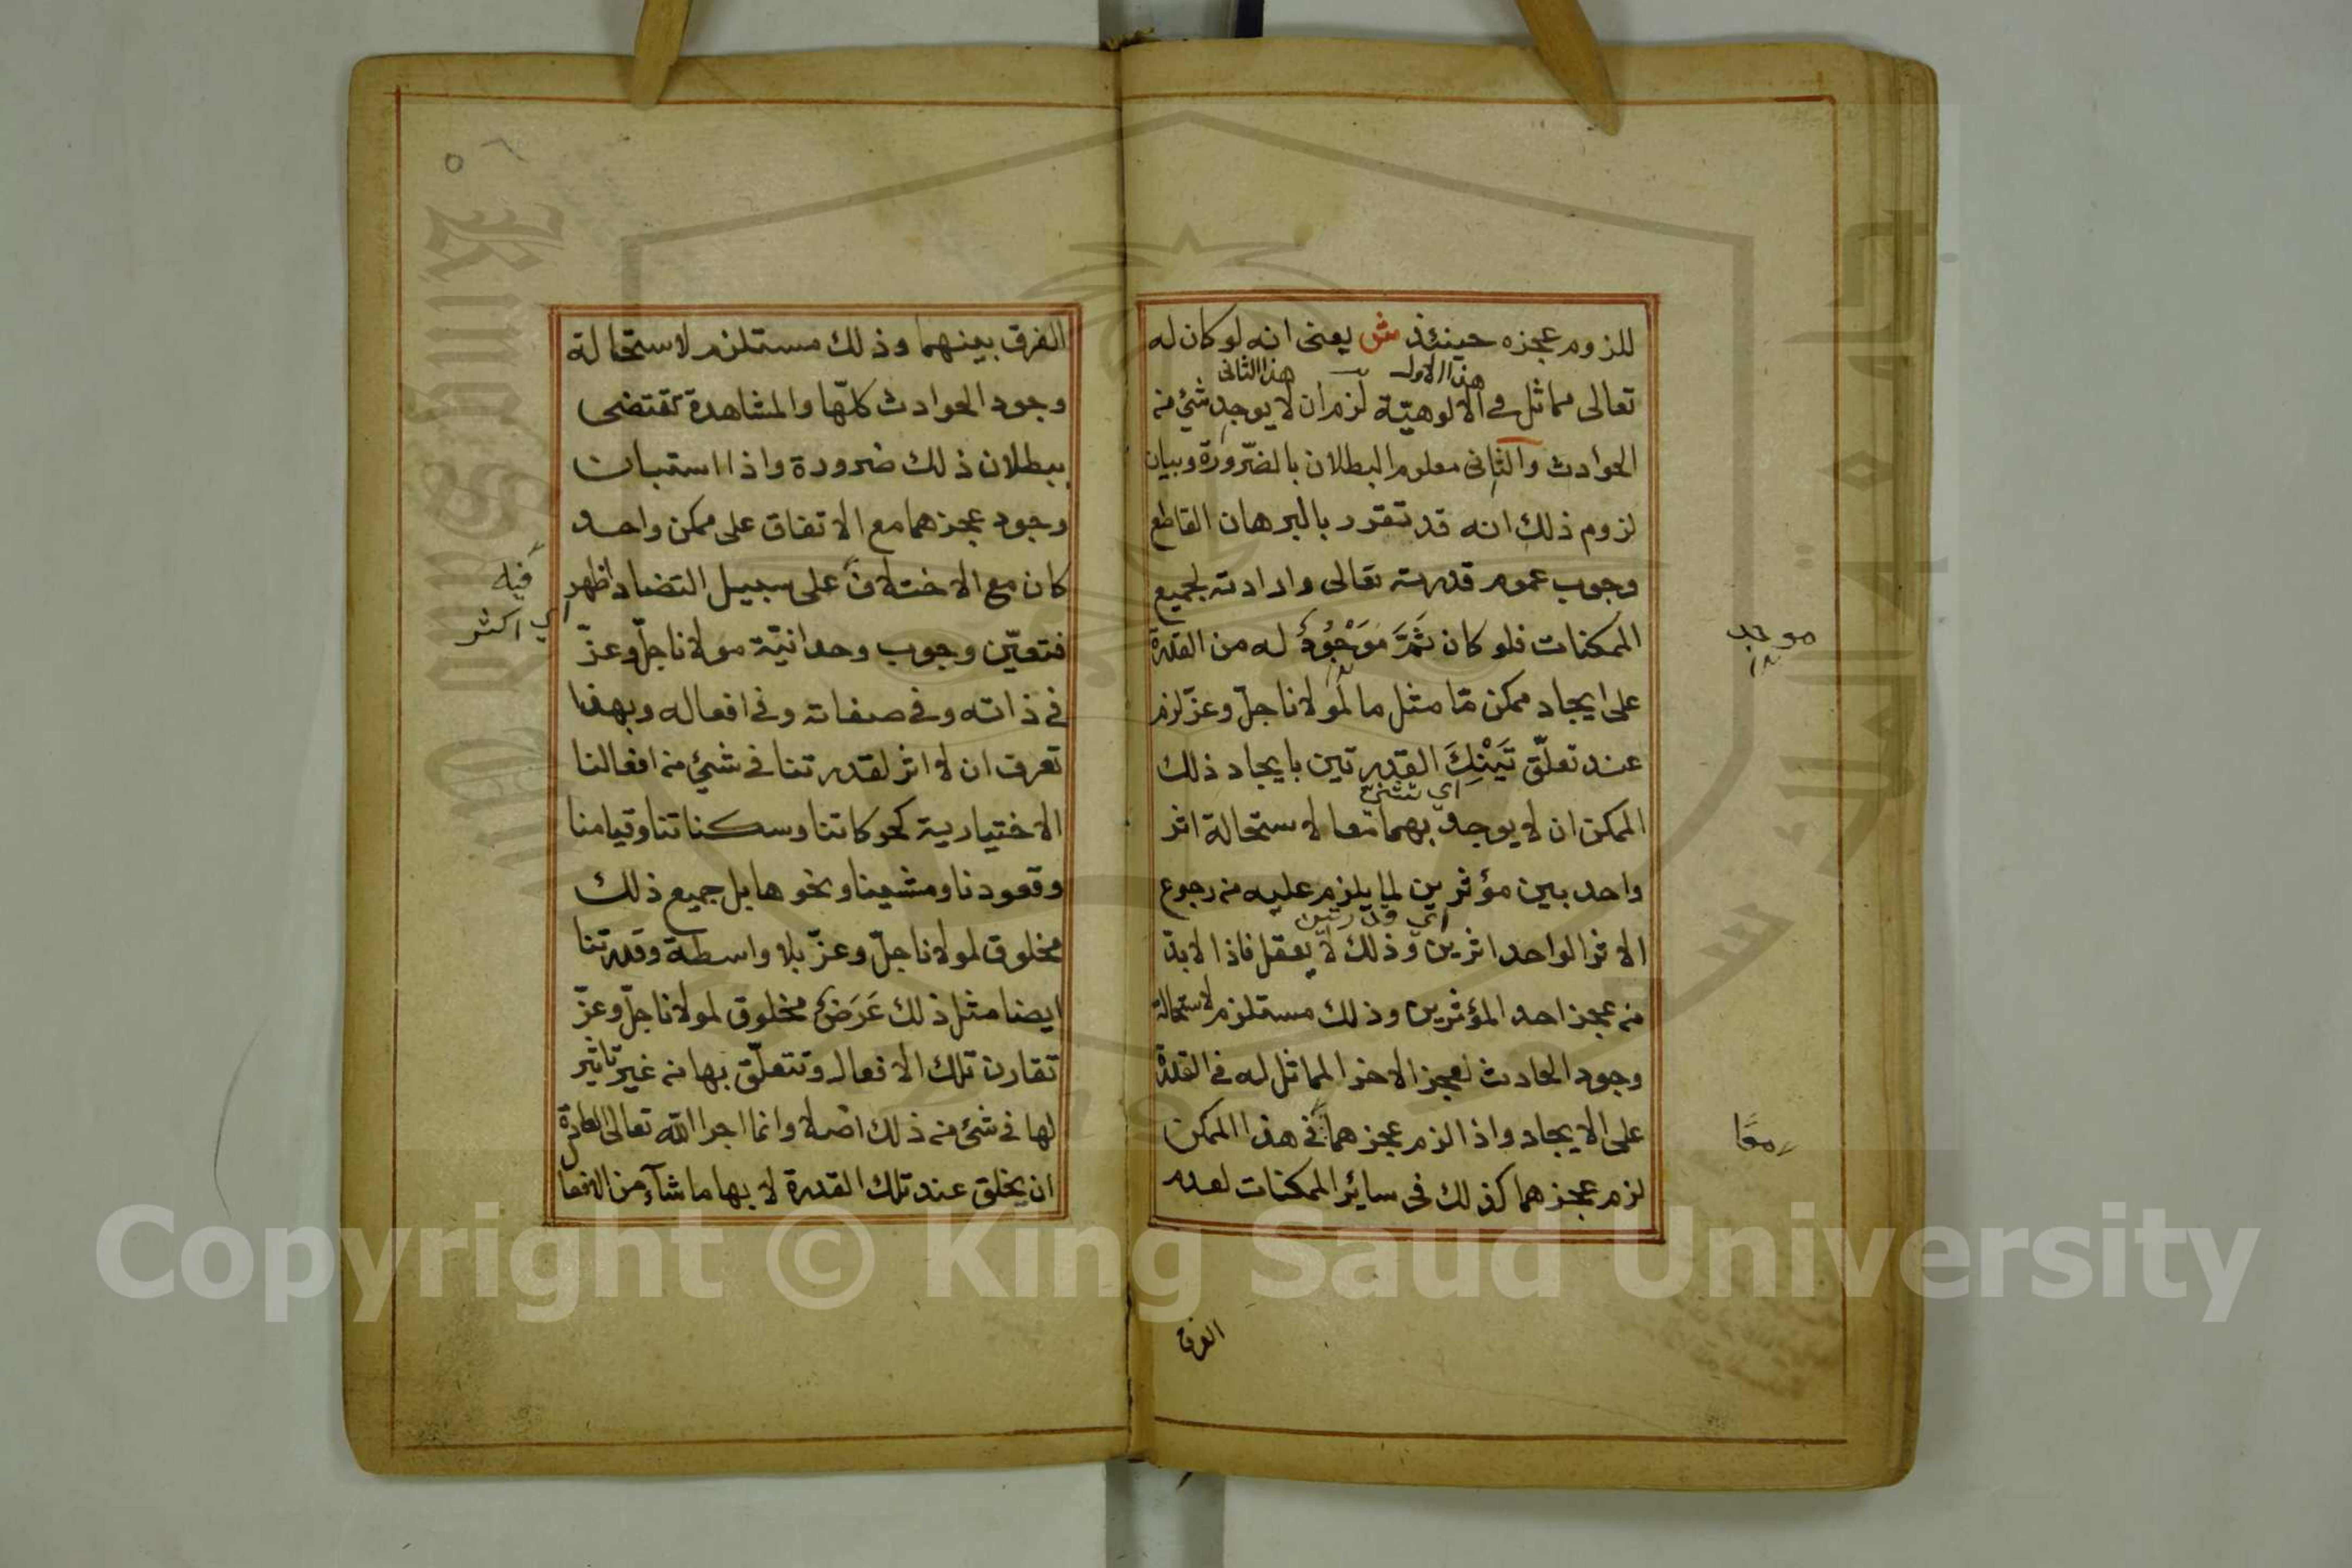 للزوم عجزه حينئذ ش يعنى انه لو كان له
هذا الاول هذا الثانى
تعالى مماثل في الالوهيّة لزم ان لا يوجد شئ من
الحوادث والثانى معلوم البطلان بالضّرورة وبيان
لزوم ذلك انه قد تقرر بالبرهان القاطع
وجوب عموم قدرته تعالى وارادته لجميع
الممكنات فلو كان ثَمَّ مَوْجُودٌ له من القدرة
على ايجاد ممكن مّا مثل ما لمولانا جلّ وعزّ لزم
عند تعلّق تَيْنِكَ القدرتين بايجاد ذلك
الممكن ان لا يوجد بهما معا لاستحالة اثر
واحد بين مؤثرين لما يلزم عليه من رجوع
الاثر الواحد اثرين وذلك لا يعقل فاذا لابدّ
من عجز احد المؤثرين وذلك مستلزم لاستحالة
وجود الحادث لعجز الاخر المماثل له في القدرة
على الايجاد واذا لزم عجزهما في هذا الممكن
لزم عجزهما كذلك فى سائر الممكنات لعدم
موجد
معًا
الفرق
٥٦
الفرق بينهما وذلك مستلزم لاستحالة
وجود الحوادث كلّها والمشاهدة تقتضى
ببطلان ذلك ضرورة واذا استبان
وجود عجزهما مع الاتفاق على ممكن واحد
كان مع الاختلاف على سبيل التضاد اظهر
فيه
اي اكثر
فتعيّن وجوب وحدانيّة مولانا جلّ وعزّ
في ذاته وفي صفاته وفي افعاله وبهذا
تعرف ان لا اثر لقدرتنا في شئ من افعالنا
الاختيارية كحركاتنا وسكناتنا وقيامنا
وقعودنا ومشينا ونحوها بل جميع ذلك
مخلوق لمولانا جلّ وعزّ بلا واسطة وقدرتنا
ايضا مثل ذلك عَرَضٌ مخلوق لمولانا جلّ وعزّ
تقارن تلك الافعال وتتعلّق بها من غير تاثير
لها في شئ من ذلك اصلا وانما اجرا الله تعالى العادة
ان يخلق عند تلك القدرة لا بها ما شآء من الافعا
Copyright © King Saud University